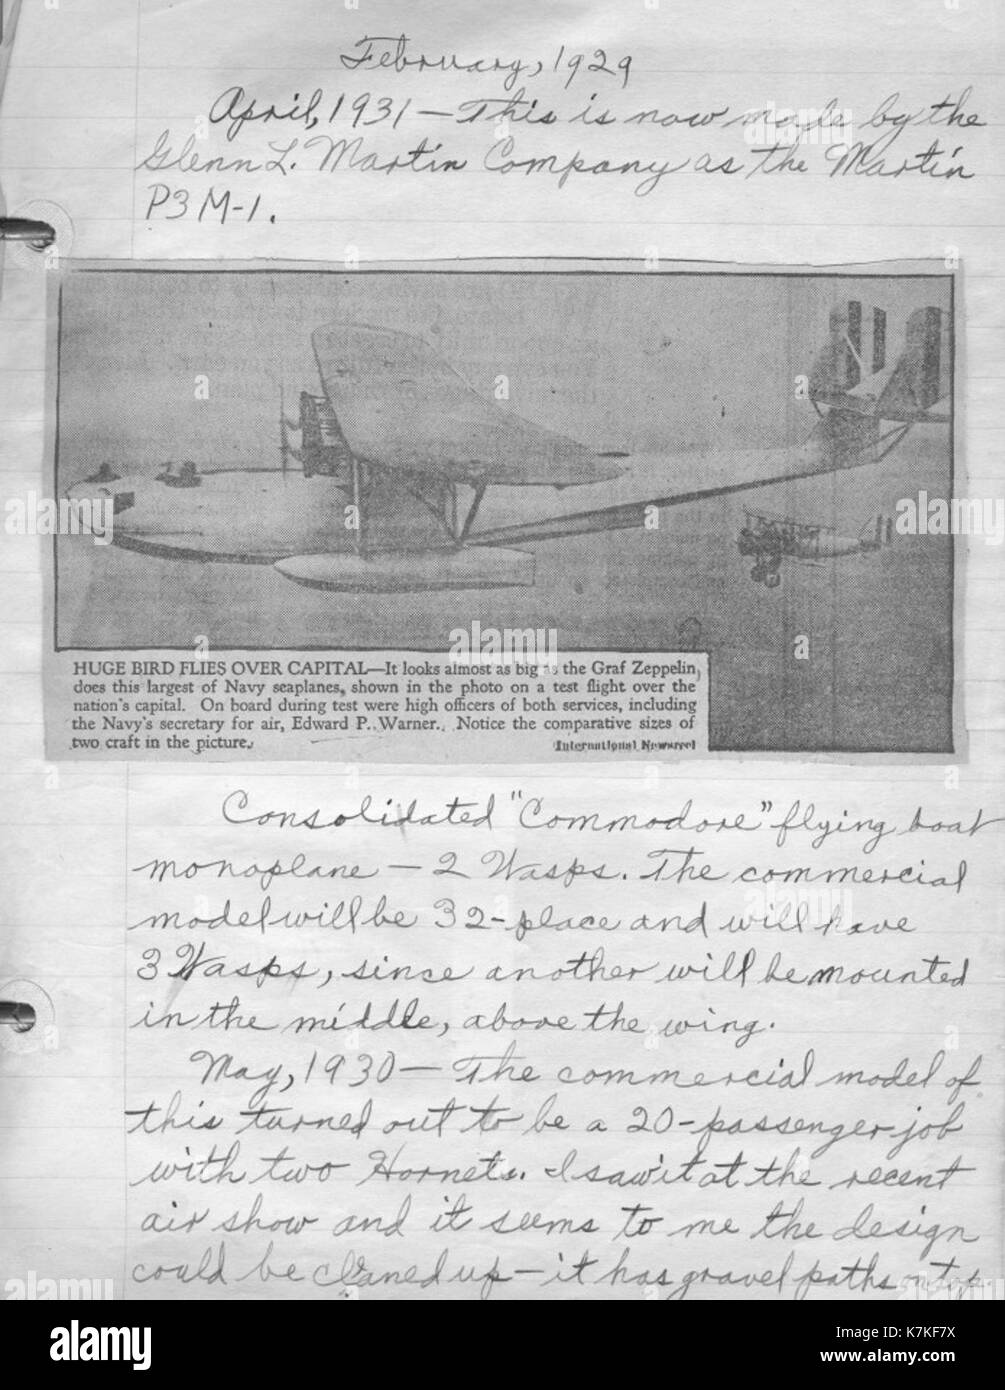 February, 1929
April, 1931 — This is now made by the
Glenn L. Martin Company as the Martin
P3M-1.
HUGE BIRD FLIES OVER CAPITAL—It looks almost as big as the Graf Zeppelin,
does this largest of Navy seaplanes, shown in the photo on a test flight over the
nation's capital. On board during test were high officers of both services, including
the Navy's secretary for air, Edward P. Warner. Notice the comparative sizes of
two craft in the picture.
International Newsreel
Consolidated "Commodore" flying boat
monoplane — 2 Wasps. The commercial
model will be 32-place and will have
3 Wasps, since another will be mounted
in the middle, above the wing.
May, 1930 — The commercial model of
this turned out to be a 20-passenger job
with two Hornets. I saw it at the recent
air show and it seems to me the design
could be cleaned up — it has gravel paths on top
alamy
Image ID: K7KF7X
www.alamy.com